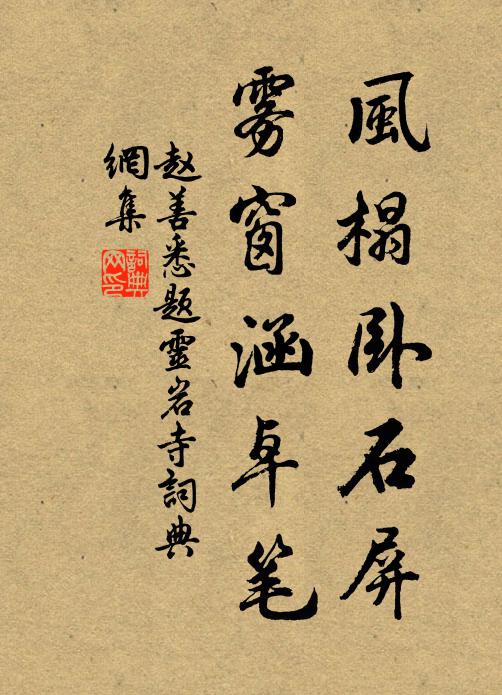 風榻卧石屏
雾窗涵卓笔
赵善悉题靈岩寺詞典
網集
詞典
网印